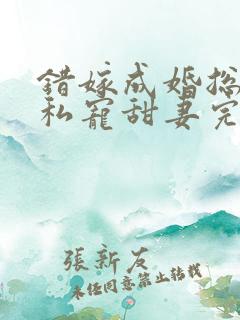 錯嫁成婚总
私寵甜妻完
張新友
未任同意禁止轉載